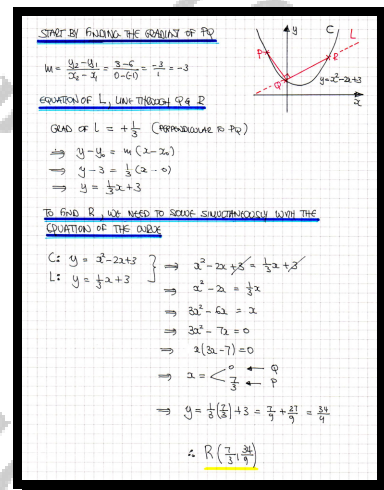 START BY FINDING THE GRADIENT OF PQ
m = (y₂-y₁)/(x₂-x₁) = (3-6)/(0-(-1)) = -3/1 = -3
y
C
L
P
R
Q
y=x²-2x+3
x
EQUATION OF L, LINE THROUGH Q & R
GRAD OF L = +1/3 (PERPENDICULAR TO PQ)
⇒ y-y₀ = m(x-x₀)
⇒ y-3 = 1/3(x-0)
⇒ y = 1/3x+3
TO FIND R, WE NEED TO SOLVE SIMULTANEOUSLY WITH THE
EQUATION OF THE CURVE
C: y = x²-2x+3
L: y = 1/3x+3
} ⇒ x²-2x+3 = 1/3x+3
⇒ x²-2x = 1/3x
⇒ 3x²-6x = x
⇒ 3x²-7x=0
⇒ x(3x-7)=0
⇒ x = < 0 ← Q
7/3 ← P
⇒ y = 1/3(7/3)+3 = 7/9 + 27/9 = 34/9
∴ R(7/3, 34/9)